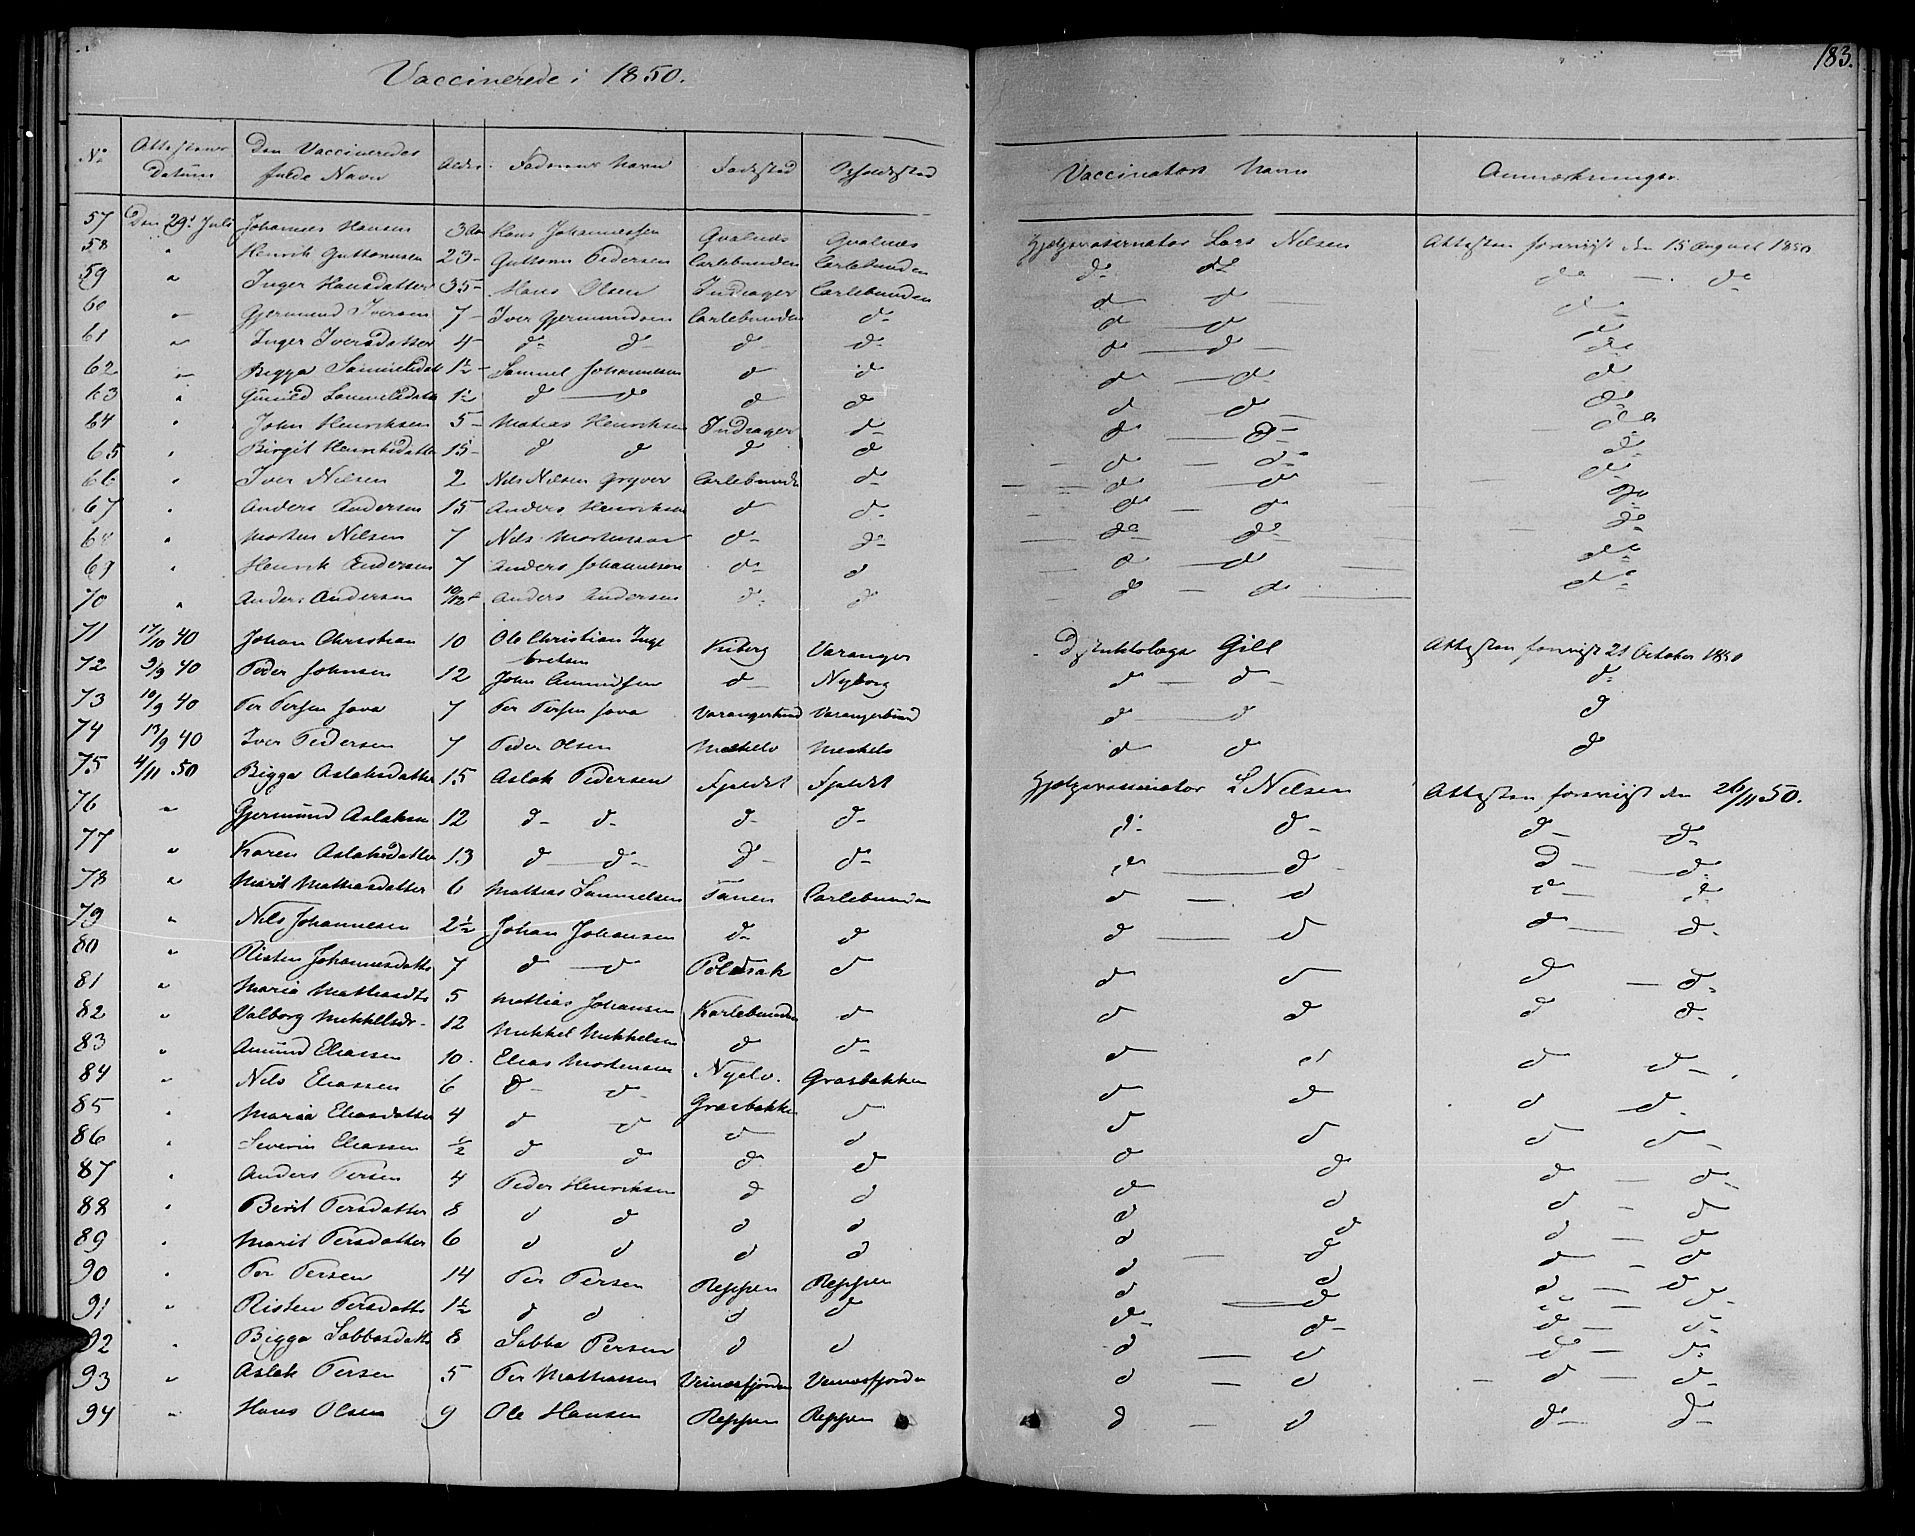 183.
Vaccinerede i 1850.
No Attestens Datum Den Vaccineredes fulde Navn Alder Faderens Navn Fødested Opholdssted Vaccinators Navn Anmærkninger
57 Den 29d Juli Johannes Hansen 3 Hans Johannessen Gvalnæs Gvalnæs Hjelpevaccinator Lars Nilsen Attesten foreviist den 15 August 1850
58 " Henrik Guttormsen 23 - Guttorm Pedersen Carlebunden Carlebunden do do do - do
59 " Inger Hansdatter 35 - Hans Olsen Indrager Carlebunden d d d
60 " Gjermund Iversen 7 - Iver Gjermundsen Carlebunden do d - d do
61 " Inger Iversdatter 4 - do do do do d - d do
62 " Bigga Samuelsdat 1½ - Samuel Johannesen d d d - d do
63 " Samuelsdatter 1½ d - do d d d d do
64 " John Henriksen 5 - Mathias Henriksen Indrager do d - d do
65 " Birgit Henriksdatter 15 - d d d d d - do do
66 " Iver Nilsen 2 Nils Nilsen Gryver Carlebunden do d - do do
67 " Anders Andersen 15 Anders Henriksen d do d d do
68 " Morten Nilsen 7 Nils Mortensen do do do do do
69 " Henrik Andersen 7 Anders Johannesen do d d - d do
70 " Anders Andersen 10/12 Anders Andersen do do d - do do
71 17/10 40 Johan Christian 10 Ole Christian Inge bretsen Kiberg Varanger Distriktslæge Gill Attesten foreviist 21 October 1850
72 9/9 40 Peder Johnsen 12 John Amundsen d - Nyborg d - d - do
73 10/9 40 Per Persen Java 7 Per Persen Java Varangerbund Varangerbund d - d d
74 13/9 40 Iver Pedersen 7 Peder Olsen Mæskelv Meskelv d d d
75 4/11 50 Bigga Aslaksdatter 15 Aslak Pedersen Fjeldet Fjeldet Hjelpevaccinator L Nilsen Attesten foreviist den 26/11 50.
76 " Gjermund Aslaksen 12 d - d - d - d - d - d - d - d -
77 " Karen Aslaksdatter 13 d - d - d - d - d - d D - d
78 " Marit Mathiasdatter 6 Mathias Samuelsen Tanen Carlebunden d - d d - d
79 " Nils Johannesen 2½ Johan Johansen do d d - d d - d
80 " Risten Johannesdatter 7 d - d Polmak d d d d - d
81 " Maria Mathiasdt 5 Mathias Johansen Karlebunden d d d d d
82 " Valborg Mikkelsdr. 12 Mikkel Mikkelsen d d - d d d d -
83 " Amund Eliassen 10 Elias Mortensen Nyelv. Græsbakken d d d d
84 " Nils Eliassen 6 d - d - Græsbakken d d d d d
85 " Maria Eliasdatter 4 d d d d d d d d
86 " Severin Eliassen ½ d d d d d d d - d
87 " Anders Persen 4 Peder Henriksen d d d d d - d
88 " Berit Persdatter 8 d d d d d d d - d
89 " Marit Persdatter 6 d d d d d - d d - d
90 " Per Persen 14 Per Persen Reppen Reppen d d d - d
91 " Risten Persdatter 1½ d d d d d - d d - d
92 " Bigga Sabbasdatter 8 Sabba Persen d d d - d d - d
93 " Aslak Persen 5 Per Mathiassen d - d d - d
94 " Hans Olsen 9 Ole Hansen Reppen Reppen d - d d - d